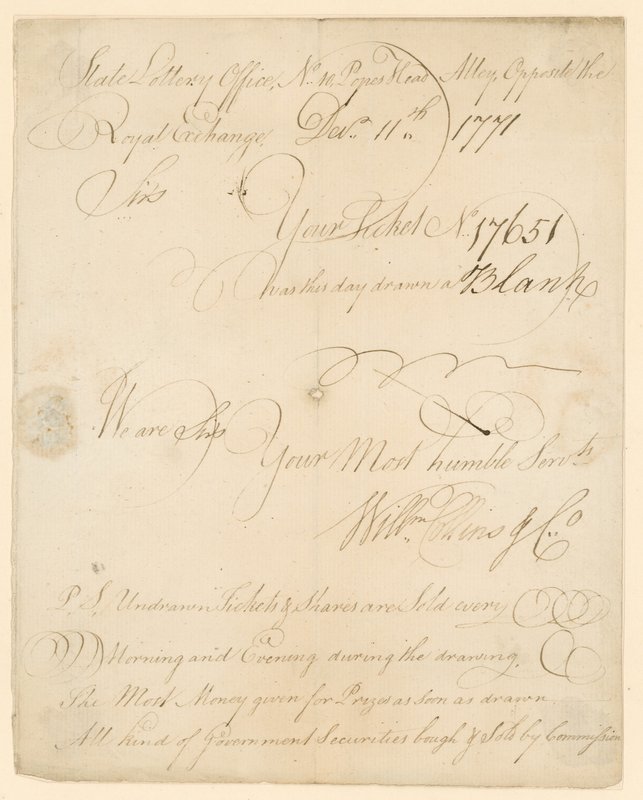 State Lottery Office, No. 10, Popes Head Alley, Opposite the
Royal Exchange, Decr. 11th 1771
Sirs
Your Ticket No. 17651
was this day drawn a Blank
We are Sirs
Your Most humble Servts
Willm Collins & Co
P. S, Undrawn Tickets & Shares are Sold every
Morning and Evening during the drawing,
The Most Money given for Prizes as soon as drawn
All kind of Government Securities bough & Sold by Commission